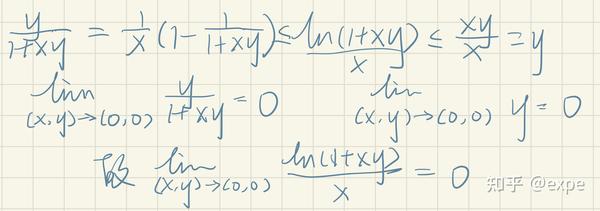 y/(1+xy) = 1/x (1 - 1/(1+xy)) ≤ ln(1+xy)/x ≤ xy/x = y
lim (x,y)→(0,0) y/(1+xy) = 0 lim (x,y)→(0,0) y = 0
故 lim (x,y)→(0,0) ln(1+xy)/x = 0
知乎 @expe